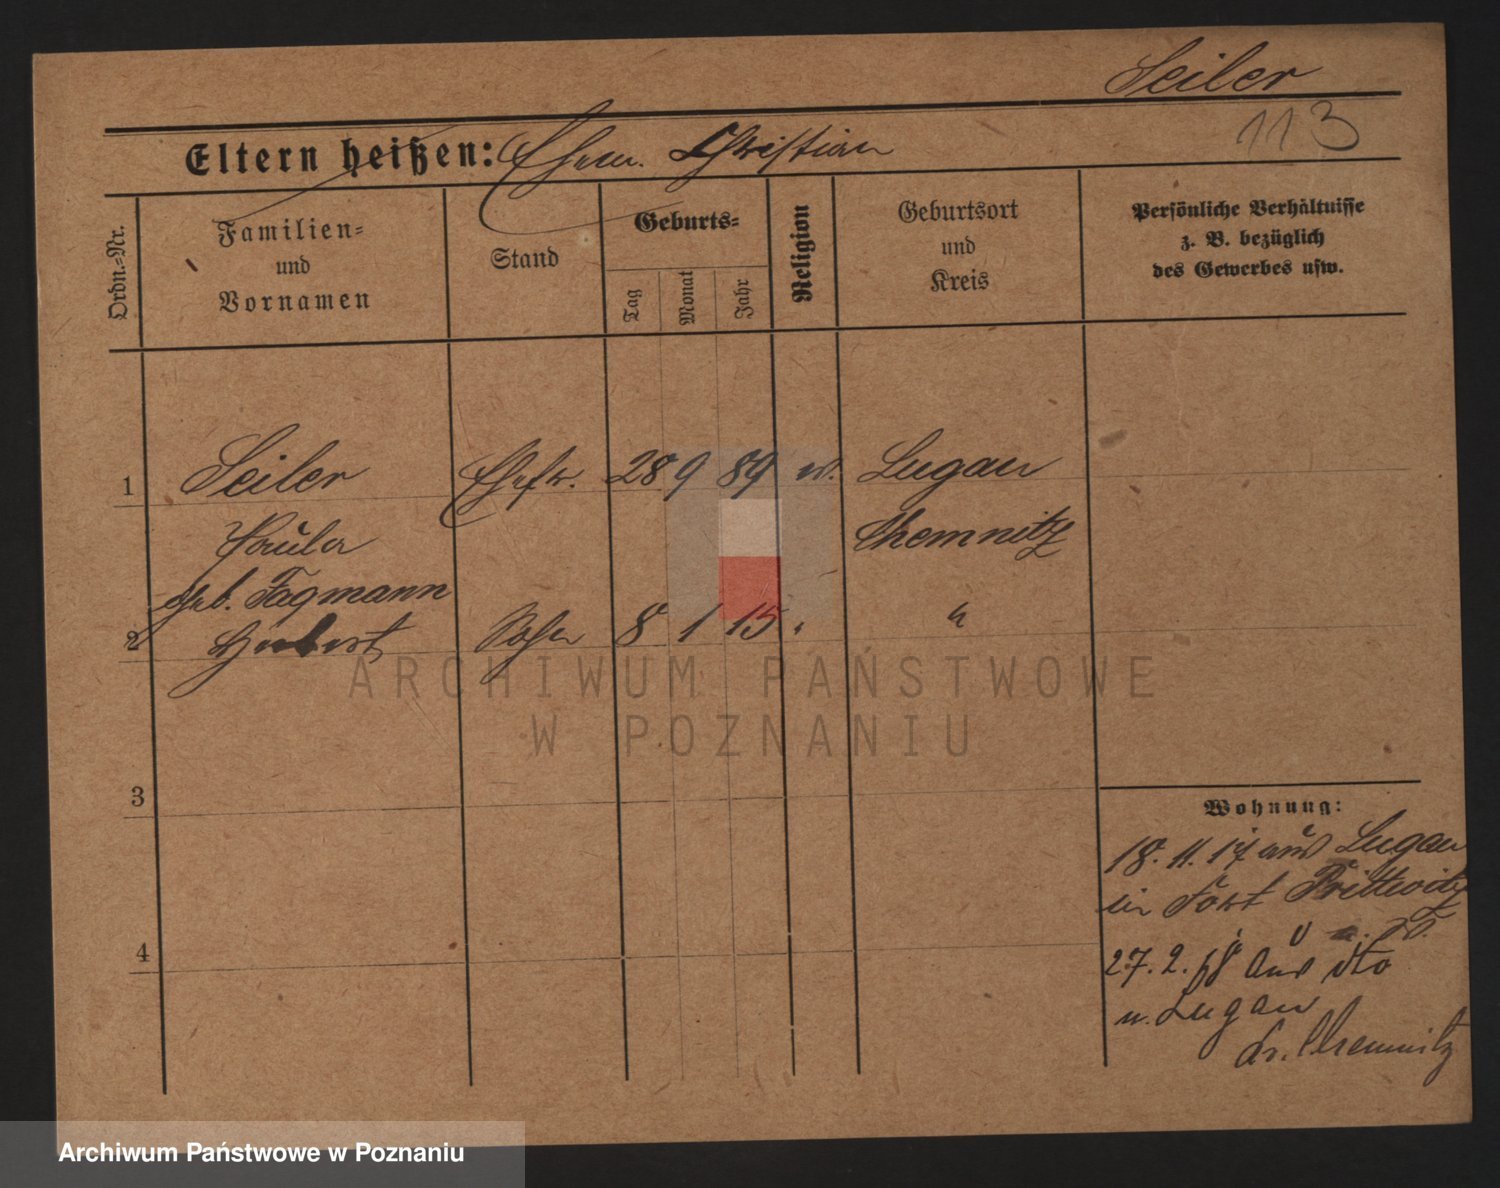 Seiler
113
Eltern heißen: Ehem. Christian
Ordn.=Nr.
Familien=
und
Vornamen
Stand
Geburts=
Tag
Monat
Jahr
Religion
Geburtsort
und
Kreis
Persönliche Verhältnisse
z. B. bezüglich
des Gewerbes usw.
1 Seiler Ehefr. 28 9 89 ev. Lugau
Paula Chemnitz
geb. Fagmann
2 Herbert Sohn 8 1 15 " "
ARCHIWUM PAŃSTWOWE
W POZNANIU
3
4
Wohnung:
18. 11. 17 aus Lugau
in Fort Prittwitz
27. 2. 18 aus dto
n. Lugau
Kr. Chemnitz
Archiwum Państwowe w Poznaniu